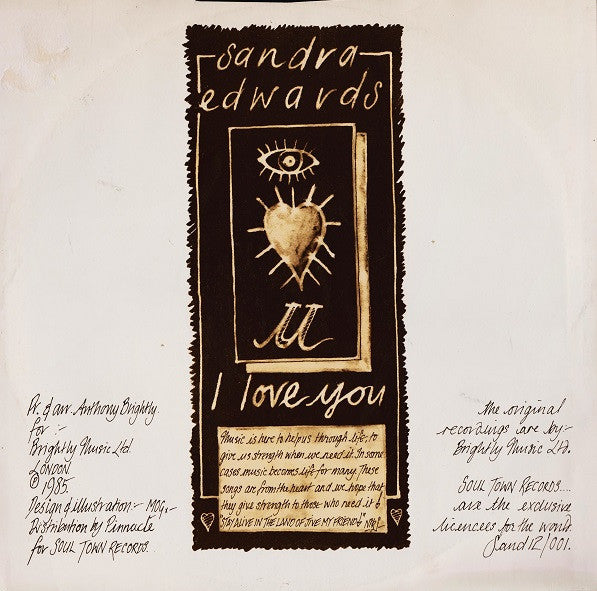 sandra
edwards
U
I love you
Music is here to help us through life, to
give us strength when we need it. In some
cases music becomes life for many. These
songs are from the heart and we hope that
they give strength to those who need it!
STAY ALIVE IN THE LAND OF JIVE MY FRIEND!
Pr. & arr. Anthony Brightly.
for :-
Brightly Music Ltd.
LONDON
© 1985.
Design & illustration :- MOG,
Distribution by Pinnacle
for SOUL TOWN RECORDS.
The original
recordings are by-
Brightly Music Ltd.
SOUL TOWN RECORDS....
are the exclusive
licencees for the world.
Sand 12/001.